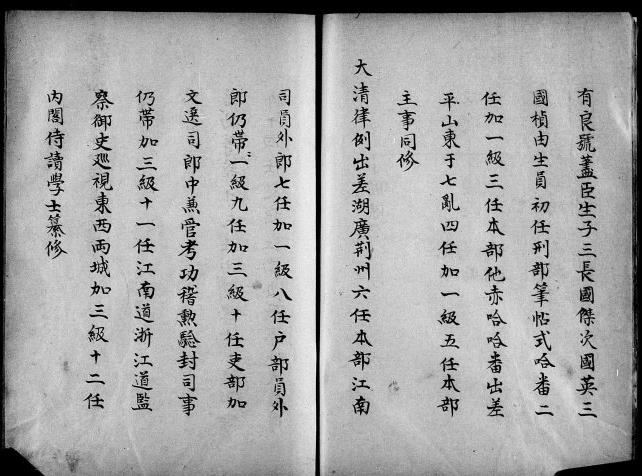 有良號藎臣生子三長國傑次國英三
國楨由生員初任刑部筆帖式哈番二
任加一級三任本部他赤哈哈番出差
平山東于七亂四任加一級五任本部
主事同修
大清律例出差湖廣荆州六任本部江南
司員外郎七任加一級八任户部員外
郎仍帶一級九任加三級十任吏部加
文選司郎中兼管考功稽勲驗封司事
仍帶加三級十一任江南道浙江道監
察御史廵視東西兩城加三級十二任
內閣侍讀學士纂修